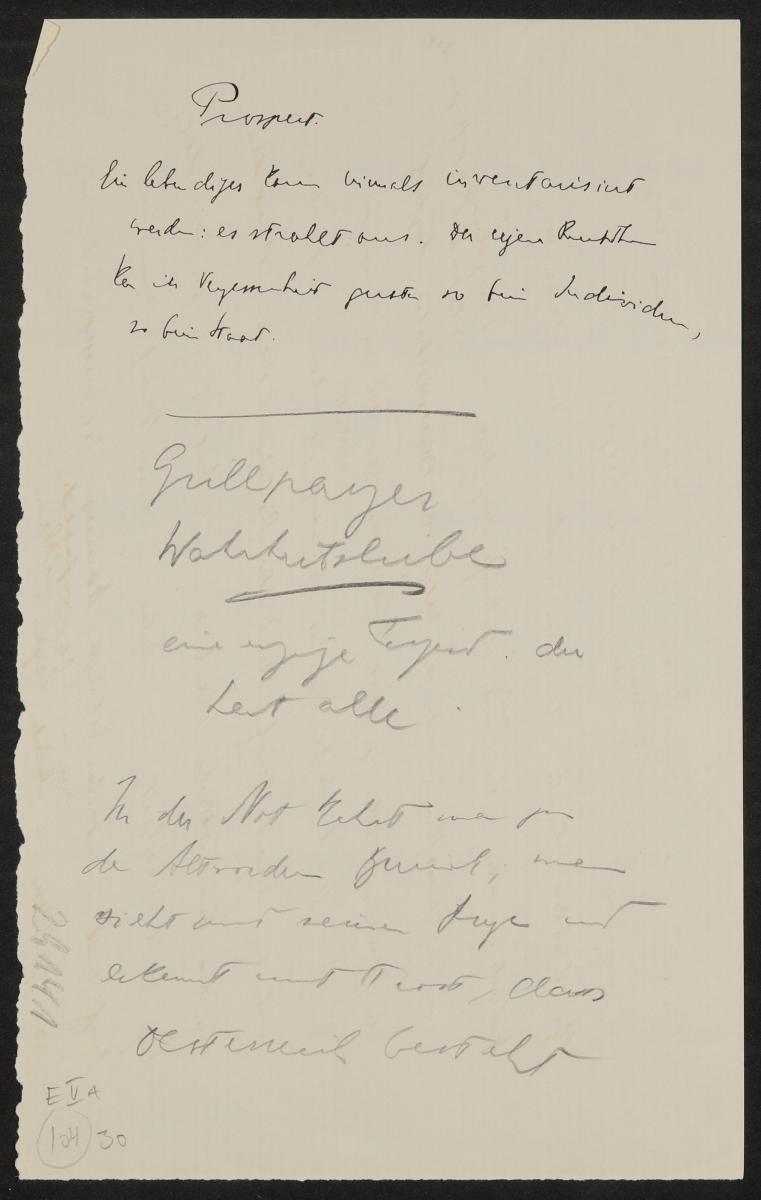 Prospect.
Ein lebendiges kann niemals inventarisiert
werden: es strahlt aus. Der eigene
in Vergessenheit so beim Individuum,
so beim Staat.
Grillparzer
Wahrheitsliebe
eine einzige Tugend. der
alle
In der Not kehrt man zu
den Altvordern zurück, man
sieht mit seinen Augen und
erkennt mit Trost, dass
Oesterreich besteht
24141
E V A
104 30